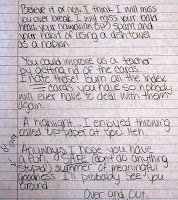 Believe it or not, I think I will miss
you over break. I will miss your odd
head, your hawaiian (50) spam and
your habit of using a dishtowel
as a napkin.
You could improve as a teacher
by getting rid of the cards.
I hate those! burn all the index
cards you have so nobody
will ever have to deal with them
again.
A highlight... I enjoyed throwing
balled up paper at you. Heh.
Anyways I hope you have
a fun, a SAFE (don't do anything
stupid) summer of meaningful
goodness. I'll probably see you
around.
Over and Out.